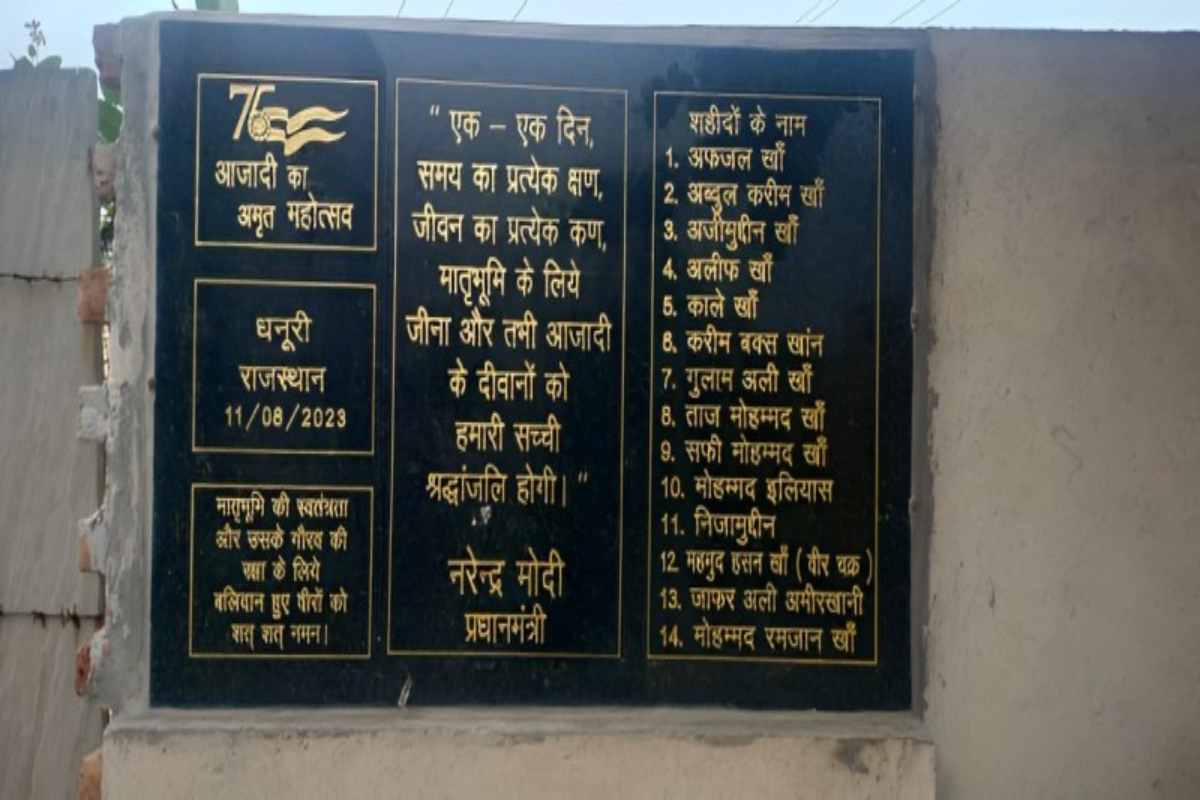 75
आजादी का
अमृत महोत्सव
धनूरी
राजस्थान
11/08/2023
मातृभूमि की स्वतंत्रता
और उसके गौरव की
रक्षा के लिये
बलिदान हुए वीरों को
शत् शत् नमन।
“ एक – एक दिन,
समय का प्रत्येक क्षण,
जीवन का प्रत्येक कण,
मातृभूमि के लिये
जीना और तभी आजादी
के दीवानों को
हमारी सच्ची
श्रद्धांजलि होगी। “
नरेन्द्र मोदी
प्रधानमंत्री
शहीदों के नाम
1. अफजल खाँ
2. अब्दुल करीम खाँ
3. अजीमुद्दीन खाँ
4. अलीफ खाँ
5. काले खाँ
6. करीम बक्स खांन
7. गुलाम अली खाँ
8. ताज मोहम्मद खाँ
9. सफी मोहम्मद खाँ
10. मोहम्मद इलियास
11. निजामुद्दीन
12 महमुद हसन खाँ ( वीर चक्र )
13. जाफर अली अमीरखानी
14. मोहम्मद रमजान खाँ